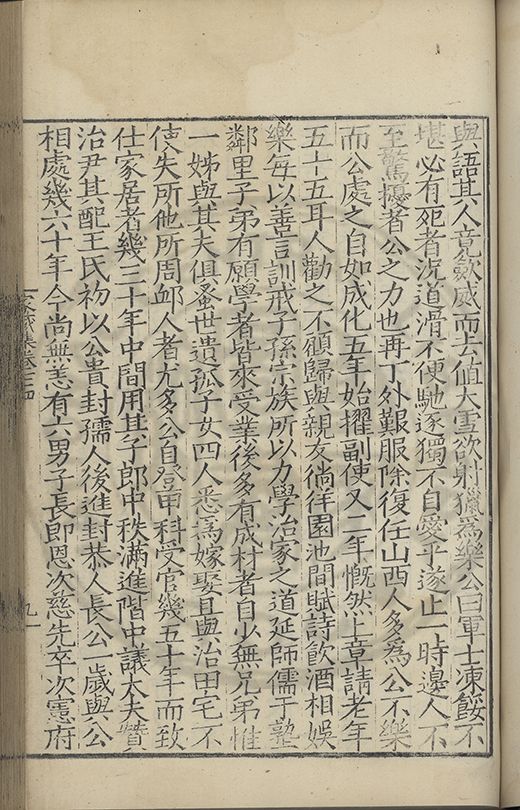 與語其人竟斂威而去值大雪欲射獵為樂公曰軍士凍餒不
堪必有死者況道滑不便馳逐獨不自愛乎遂止一時邊人不
至驚擾者公之力也再丁外艱服除復任山西人多為公不樂
而公處之自如成化五年始擢副使又二年慨然上章請老年
五十五耳人勸之不顧歸與親友徜徉園池間賦詩飲酒相娛
樂每以善言訓戒子孫宗族所以力學治家之道延師儒于塾
鄰里子弟有願學者皆來受業後多有成材者自少無兄弟惟
一姊與其夫俱蚤世遺孤子女四人悉為嫁娶且與治田宅不
使失所他所周卹人者尤多公自登甲科受官幾五十年而致
仕家居者幾三十年中間用其子郎中秩滿進階中議大夫贊
治尹其配王氏初以公貴封孺人後進封恭人長公一歲與公
相處幾六十年今尚無恙有六男子長即恩次慈先卒次憲府